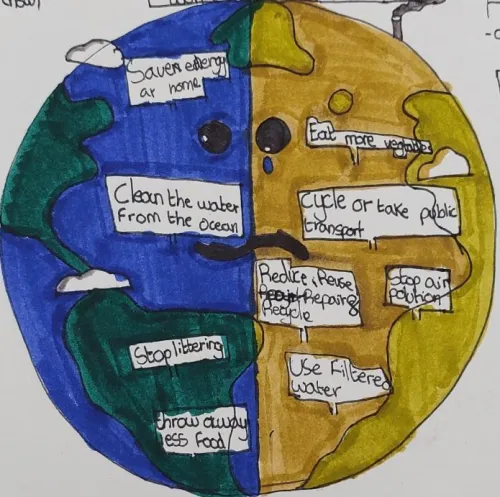 Save energy
at home
Eat more vegetables
Clean the water
From the ocean
Cycle or take public
transport
Reduce, Reuse
Repairing
Recycle
Stop air
polution
Stop littering
Use Filtered
water
throw away
less Food